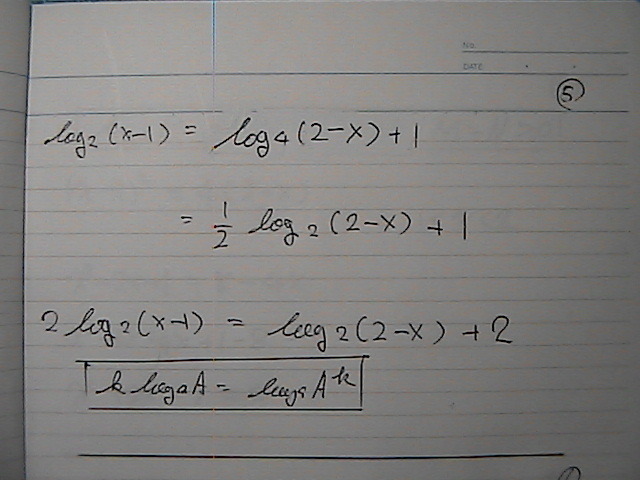 No.
DATE
⑤
log₂(x-1) = log₄(2-x)+1
= 1/2 log₂(2-x)+1
2log₂(x-1) = log₂(2-x)+2
k logₐA = logₐAᵏ